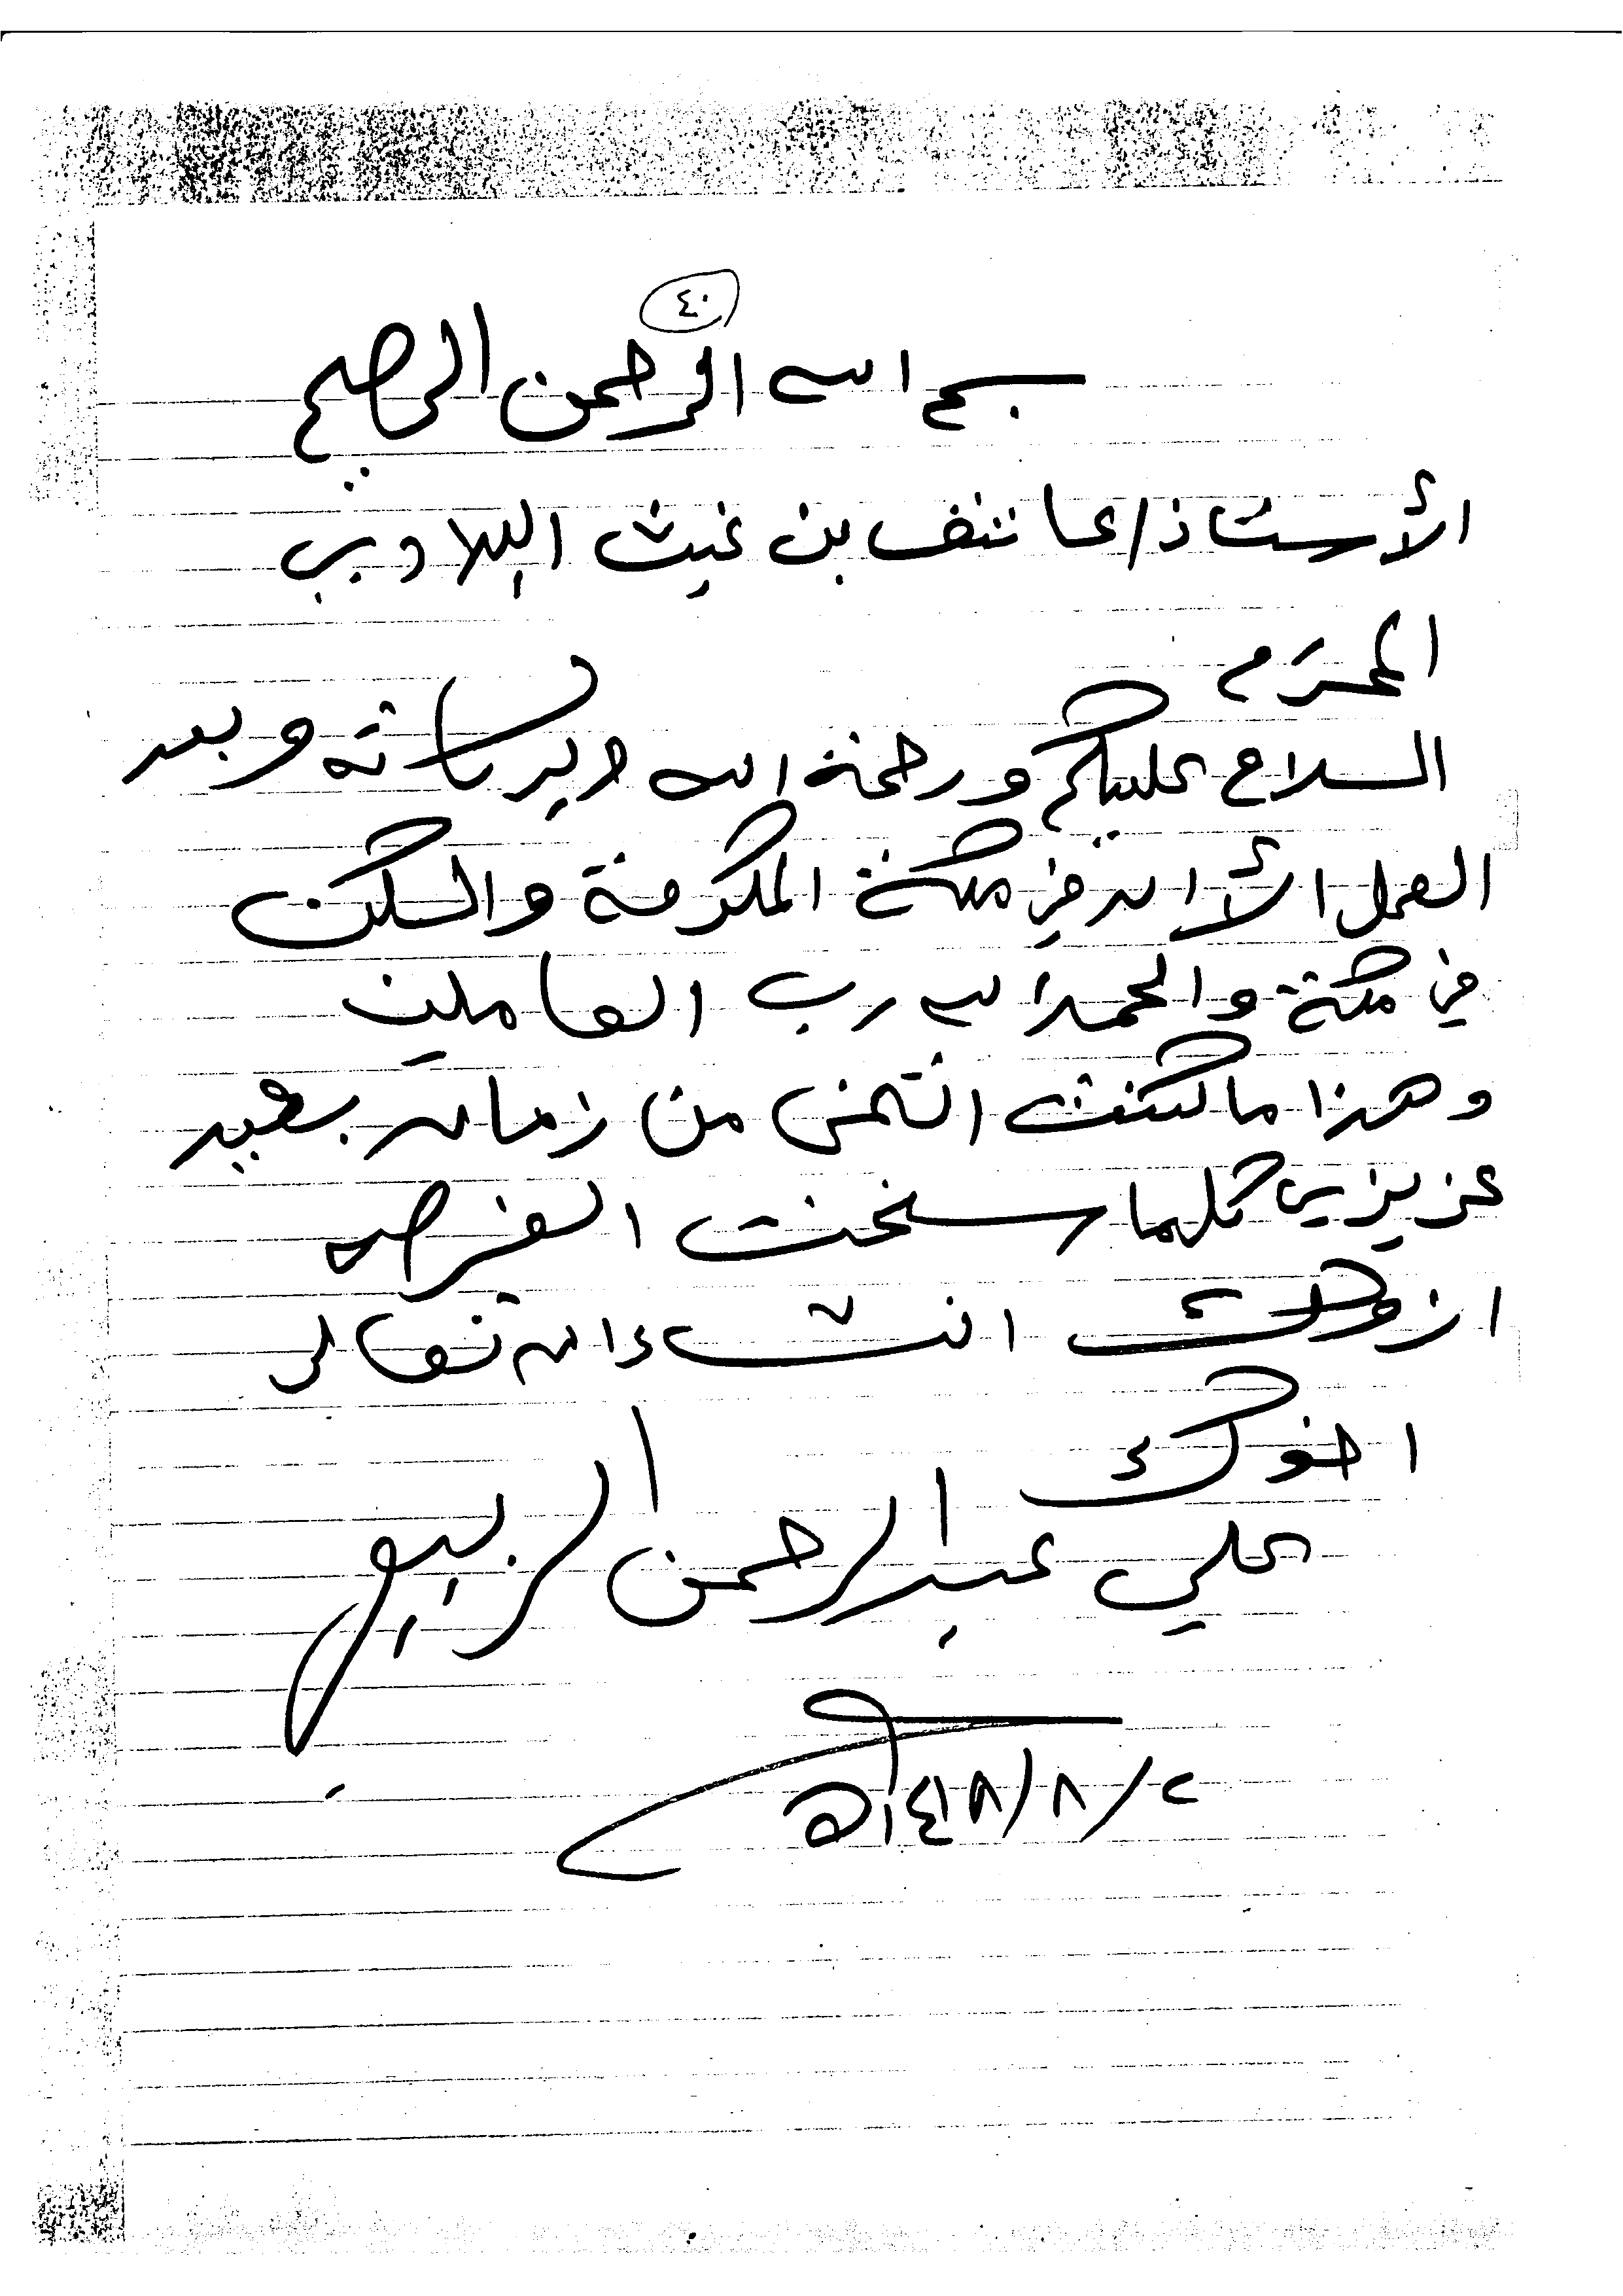 ٤٠
بسم الله الرحمن الرحيم
الأستاذ/عاتق بن غيث البلادي
المحترم
السلام عليكم ورحمة الله وبركاته وبعد
العمل الأان في مكة المكرمة والسكن
في مكة والحمدالله رب العاملين
وهذا ما كنت اتمنى من زمان بعيد
عزيزي كلما سنحت الفرصه
ازورك انشاءالله تعالى
اخوك
علي عبدالرحمن
٢/٨/١٤١٨هـ